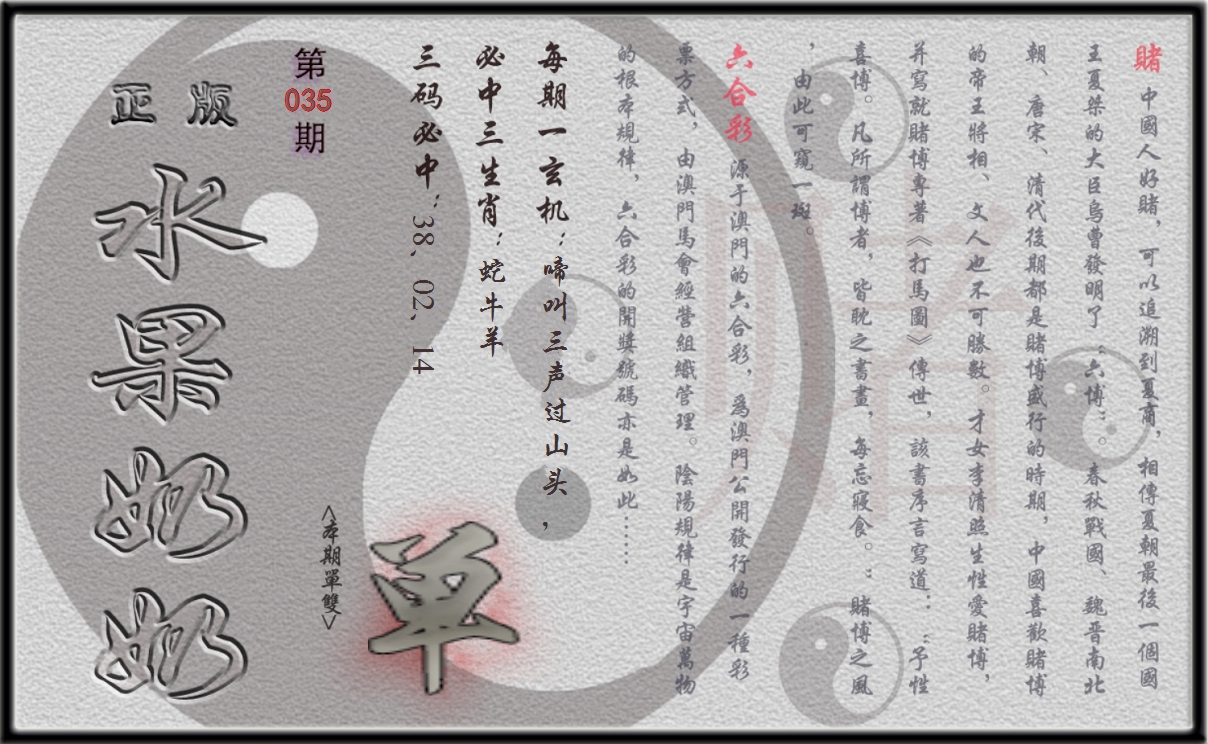 賭 中國人好賭，可以追溯到夏商，相傳夏朝最後一個國
王夏桀的大臣烏曹發明了“六博”。春秋戰國、魏晉南北
朝、唐宋、清代後期都是賭博盛行的時期，中國喜歡賭博
的帝王將相、文人也不可勝數。才女李清照生性愛賭博，
并寫就賭博專著《打馬圖》傳世，該書序言寫道：“予性
喜博。凡所謂博者，皆耽之晝晝，每忘寢食。：賭博之風
，由此可窺一斑。
六合彩 源于澳門的六合彩，爲澳門公開發行的一種彩
票方式，由澳門馬會經營組織管理。陰陽規律是宇宙萬物
的根本規律，六合彩的開獎號碼亦是如此……
每期一玄机：啼叫三声过山头，
必中三生肖：蛇牛羊
三码必中：38、02、14
單
<本期單雙>
第
035
期
正版
水果奶奶
賭